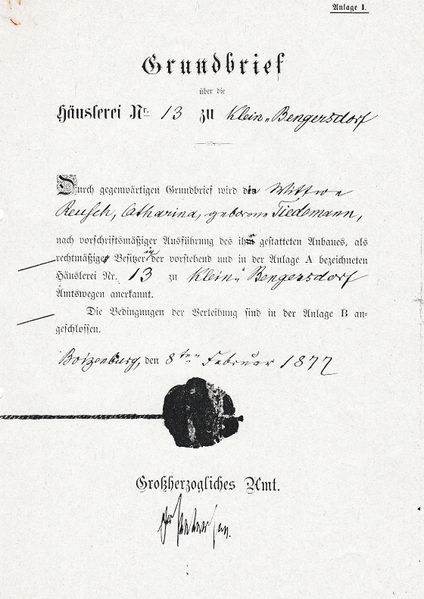 Anlage 1.
Grundbrief
über die
Häuslerei Nr. 13 zu Klein-Bengersdorf
Durch gegenwärtigen Grundbrief wird die Wittwe
Reusch, Catharina, geborene Tiedemann,
nach vorschriftsmäßiger Ausführung des ihr gestatteten Anbaues, als
rechtmäßige Besitzerin der vorstehend und in der Anlage A bezeichneten
Häuslerei Nr. 13 zu Klein-Bengersdorf
Amtswegen anerkannt.
Die Bedingungen der Verleihung sind in der Anlage B an-
geschlossen.
Boizenburg, den 8ten Februar 1877
Großherzogliches Amt.